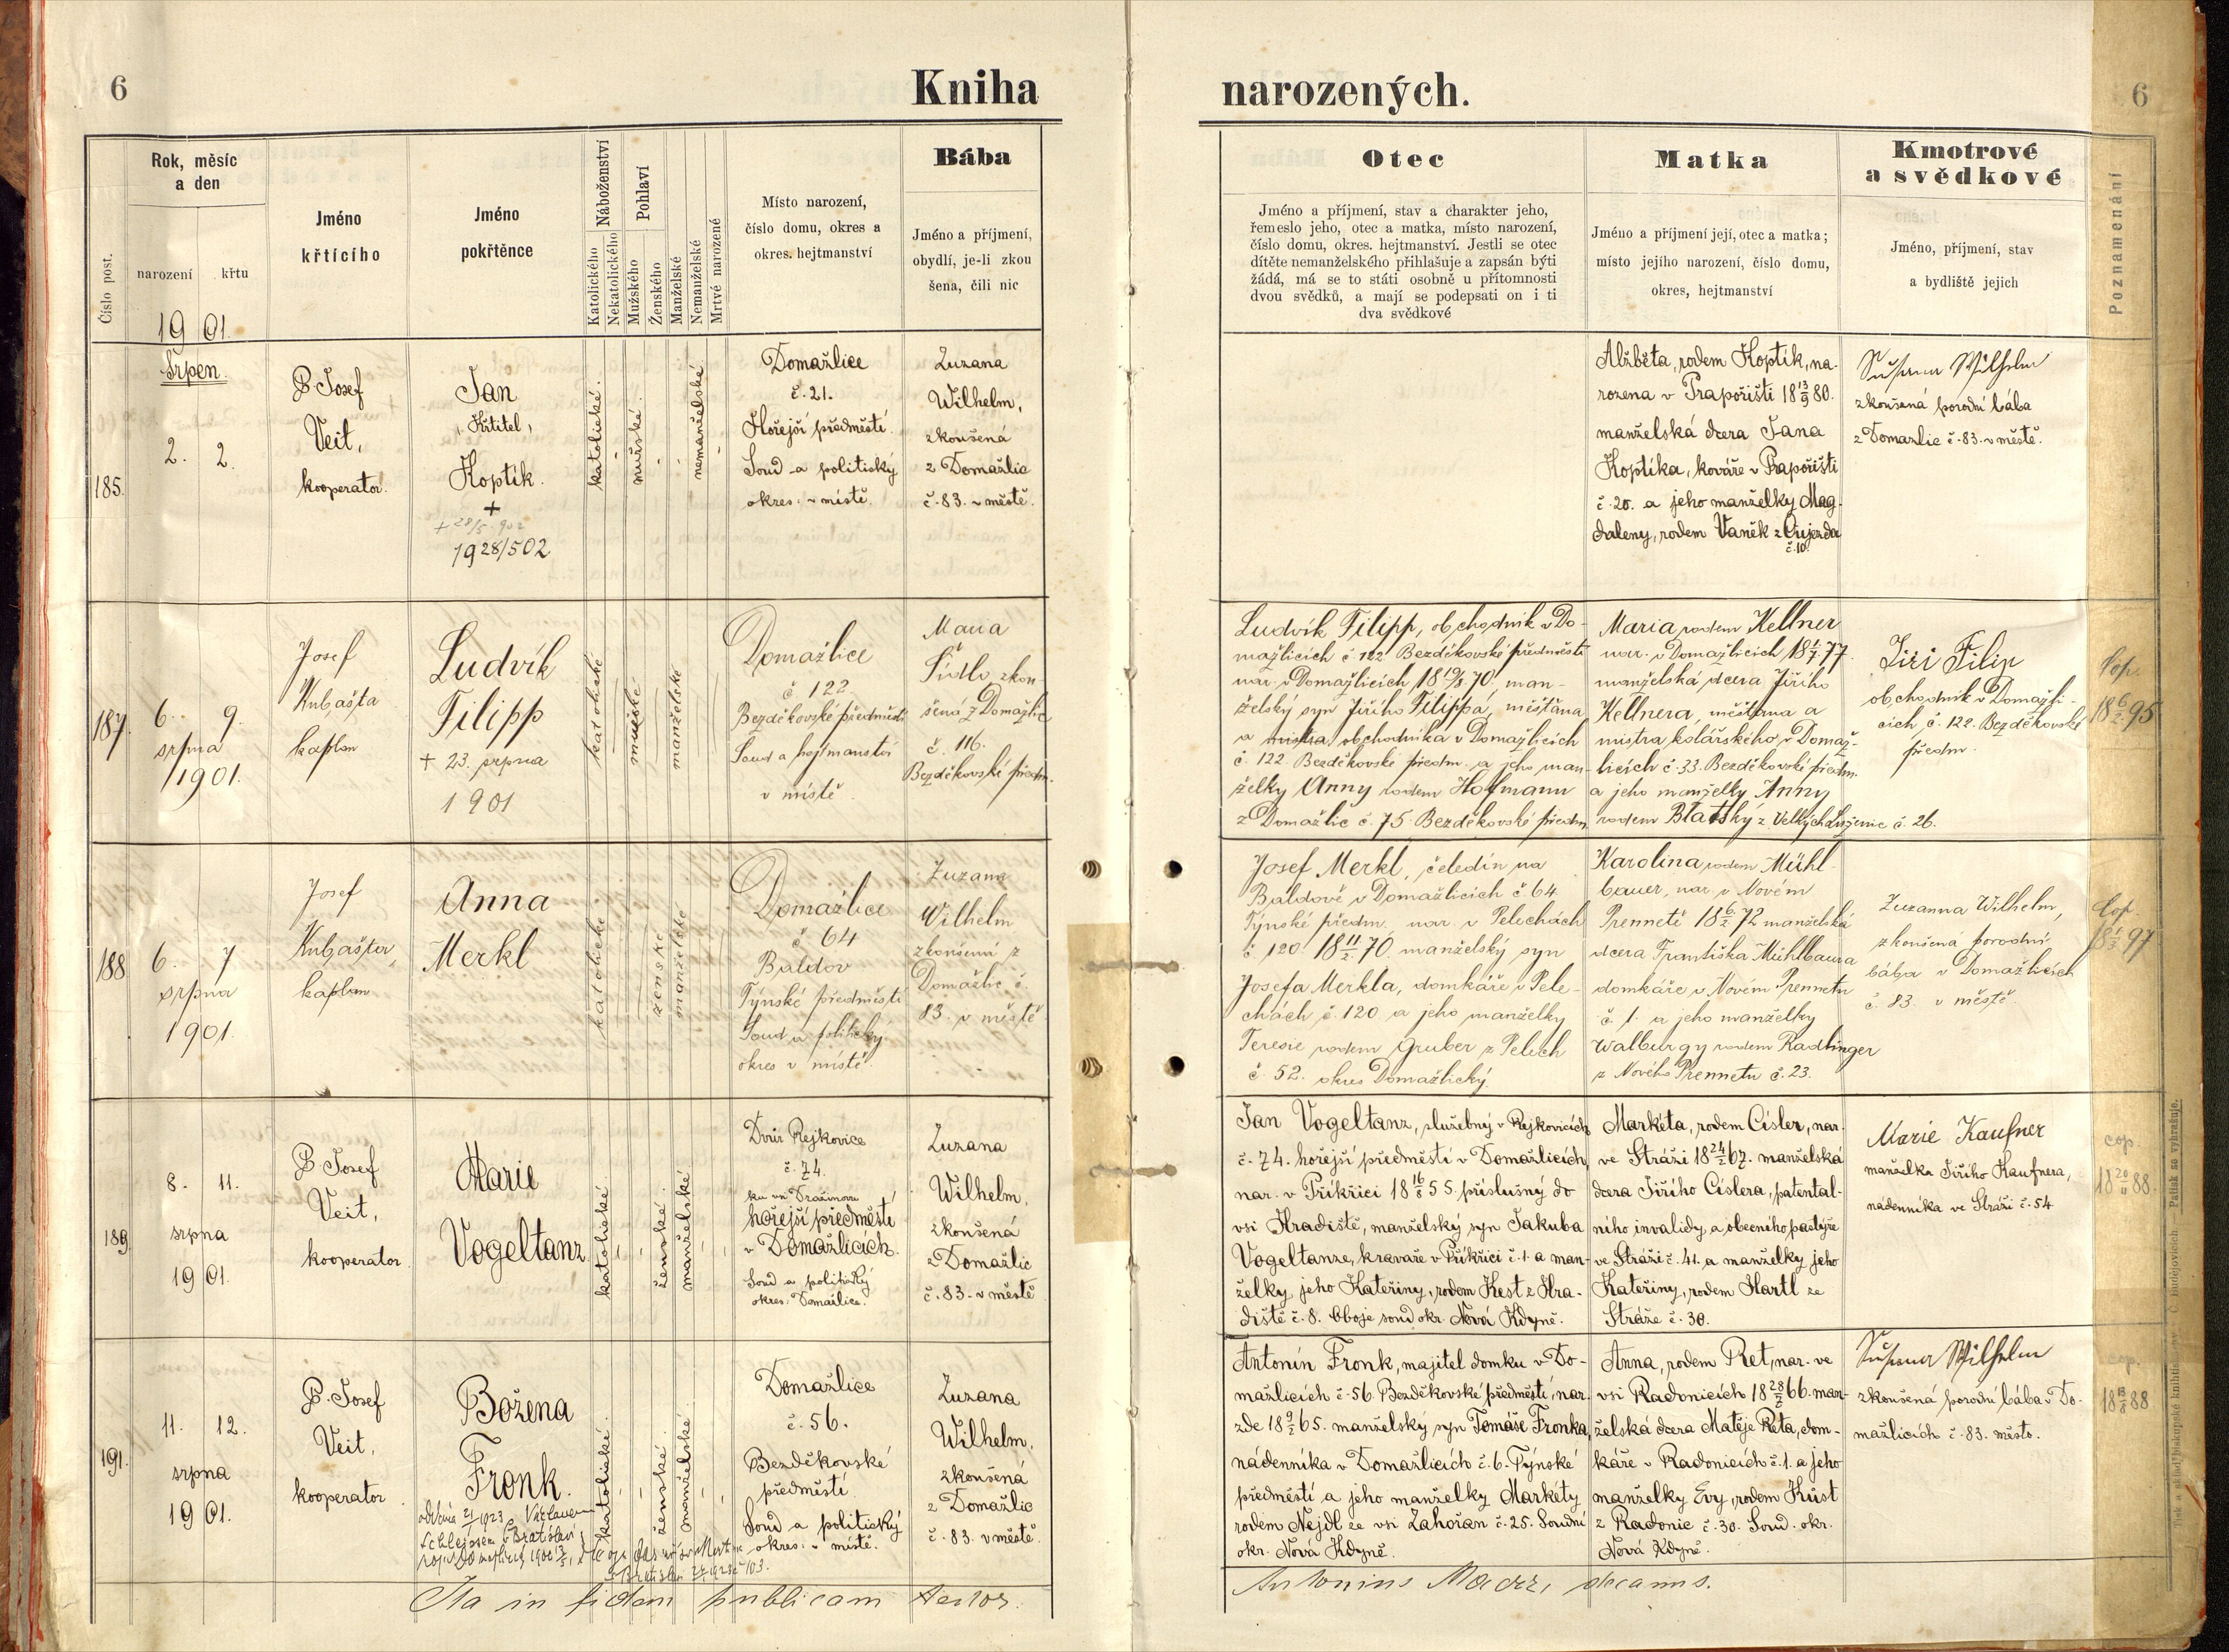 6
Kniha
narozených.
6
Číslo post.
Rok, měsíc
a den
narození
křtu
1901.
Jméno
křtícího
Jméno
pokřtěnce
Náboženství
Katolického
Nekatolického
Pohlaví
Mužského
Ženského
Manželské
Nemanželské
Mrtvé narozené
Místo narození,
číslo domu, okres a
okres. hejtmanství
Bába
Jméno a příjmení,
obydlí, je-li zkou
šena, čili nic
Otec
Jméno a příjmení, stav a charakter jeho,
řemeslo jeho, otec a matka, místo narození,
číslo domu, okres. hejtmanství. Jestli se otec
dítěte nemanželského přihlašuje a zapsán býti
žádá, má se to státi osobně u přítomnosti
dvou svědků, a mají se podepsati on i ti
dva svědkové
Matka
Jméno a příjmení její, otec a matka;
místo jejího narození, číslo domu,
okres, hejtmanství
Kmotrové
a svědkové
Jméno, příjmení, stav
a bydliště jejich
Poznamenání
185.
Srpen.
2. 2.
P. Josef
Veit,
kooperator.
Jan
(Křtitel)
Koptik.
+
+ 28/5. 902
1928/502
katolické.
mužské.
nemanželské.
Domažlice
č. 21.
Hořejší předměstí.
Soud a politický
okres: v místě.
Zuzana
Wilhelm,
zkoušená
z Domažlic
č. 83. v městě.
Alžběta, rodem Koptik, na-
rozena v Prapořišti 18 13/9 80.
manželská dcera Jana
Koptika, kováře v Prapořišti
č. 20. a jeho manželky Mag-
daleny, rodem Vaněk z Oujezda
č. 10.
Susanna Wilhelm
zkoušená porodní bába
z Domažlic č. 83. v městě.
187.
6. 9.
srpna
1901.
Josef
Kubašta
kaplan
Ludvík
Filipp
+ 23. srpna
1901
katolické
mužské
manželské
Domažlice
č. 122.
Bezděkovské předměstí
Soud a hejtmanství
v místě
Maria
Šídlo zkou-
šená z Domažlic
č. 116.
Bezděkovské předm.
Ludvík Filipp, obchodník v Do-
mažlicích č 122 Bezděkovské předměstí
nar. v Domažlicích 18 19/8 70, man-
želský syn Jiřího Filippa, měšťana
a mistra obchodníka v Domažlicích
č. 122. Bezděkovské předm. a jeho man-
želky Anny rodem Hofmann
z Domažlic č. 75. Bezděkovské předm.
Maria rodem Kellner
nar. v Domažlicích 18 1/7 77.
manželská dcera Jiřího
Kellnera, měšťana a
mistra kolářského v Domaž-
licích č. 33. Bezděkovské předm.
a jeho manželky Anny
rodem Blatský z Velkých Luženic č. 26.
Jiří Filip
obchodník v Domažli-
cích č. 122. Bezděkovské
předm.
Cop.
18 6/2 95
188
6. 7
srpna
1901.
Josef
Kubašta,
kaplan
Anna
Merkl
katolické.
ženské
manželské
Domažlice
č 64
Baldov
Týnské předměstí
Soud a politický
okres v místě.
Zuzana
Wilhelm
zkoušená z
Domažlic č.
83. v městě
Josef Merkl, čeledín na
Baldově v Domažlicích č 64.
Týnské předm. nar. v Pelechách
č 120 18 11/2 70. manželský syn
Josefa Merkla, domkáře v Pele-
chách č. 120 a jeho manželky
Teresie rodem Gruber z Pelech
č. 52. okres Domažlický.
Karolina rodem Mühl-
bauer, nar. v Novém
Prennetě 18 6/2 72 manželská
dcera Františka Mühlbaura
domkáře v Novém Prennetu
č. 1. a jeho manželky
Walburgy rodem Radlinger
z Nového Prennetu č. 23.
Zuzanna Wilhelm,
zkoušená porodní
bába v Domažlicích
č. 83. v městě.
Cop.
18 1/3 97
189.
8. 11.
srpna
1901.
P. Josef
Veit,
kooperator.
Marie
Vogeltanz
katolické.
ženské.
manželské
Dvůr Rejkovice
č. 74.
hořejší předměstí
v Domažlicích.
Soud a politický
okres: Domažlice.
Zuzana
Wilhelm,
zkoušená
z Domažlic
č. 83. v městě
Jan Vogeltanz, služebný v Rejkovicích
č. 74. hořejší předměstí v Domažlicích,
nar. v Příkřici 18 16/8 55. příslušný do
vsi Hradiště, manželský syn Jakuba
Vogeltanze, kravaře v Příkřici č. 1. a man-
želky jeho Kateřiny, rodem Kest z Hra-
diště č. 8. Oboje soud okr. Nová Kdyně.
Markéta, rodem Cisler, nar.
ve Stráži 18 24/2 67. manželská
dcera Jiřího Cislera, patental-
ního invalidy, a obecního pastýře
ve Stráži č. 41. a manželky jeho
Kateřiny, rodem Hartl ze
Stráže č. 30.
Marie Kaufner
manželka Jiřího Kaufnera,
nádenníka ve Stráži č. 54.
cop.
18 20/11 88.
191.
11. 12.
srpna
1901.
P. Josef
Veit,
kooperator.
Božena
Fronk.
katolické.
ženské.
manželské.
Domažlice
č. 56.
Bezděkovské
předměstí.
Soud a politický
okres: v místě.
Zuzana
Wilhelm,
zkoušená
z Domažlic
č. 83. v městě.
Antonín Fronk, majitel domku v Do-
mažlicích č. 56. Bezděkovské předměstí, nar.
zde 18 9/2 65. manželský syn Tomáše Fronka,
nádenníka v Domažlicích č. 6. Týnské
předměstí a jeho manželky Markéty
rodem Nejdl ze vsi Zahořan č. 25. Soudní
okr. Nová Kdyně.
Anna, rodem Ret, nar. ve
vsi Radonicích 18 28/2 66. man-
želská dcera Matěje Reta, dom-
káře v Radonicích č. 1. a jeho
manželky Evy, rodem Küst
z Radonic č. 30. Soud. okr.
Nová Kdyně.
Susanna Wilhelm
zkoušená porodní bába v Do-
mažlicích č. 83. město.
cop.
18 13/8 88
Ita in fidem publicam testor.
Antonius Macrz, decanus.